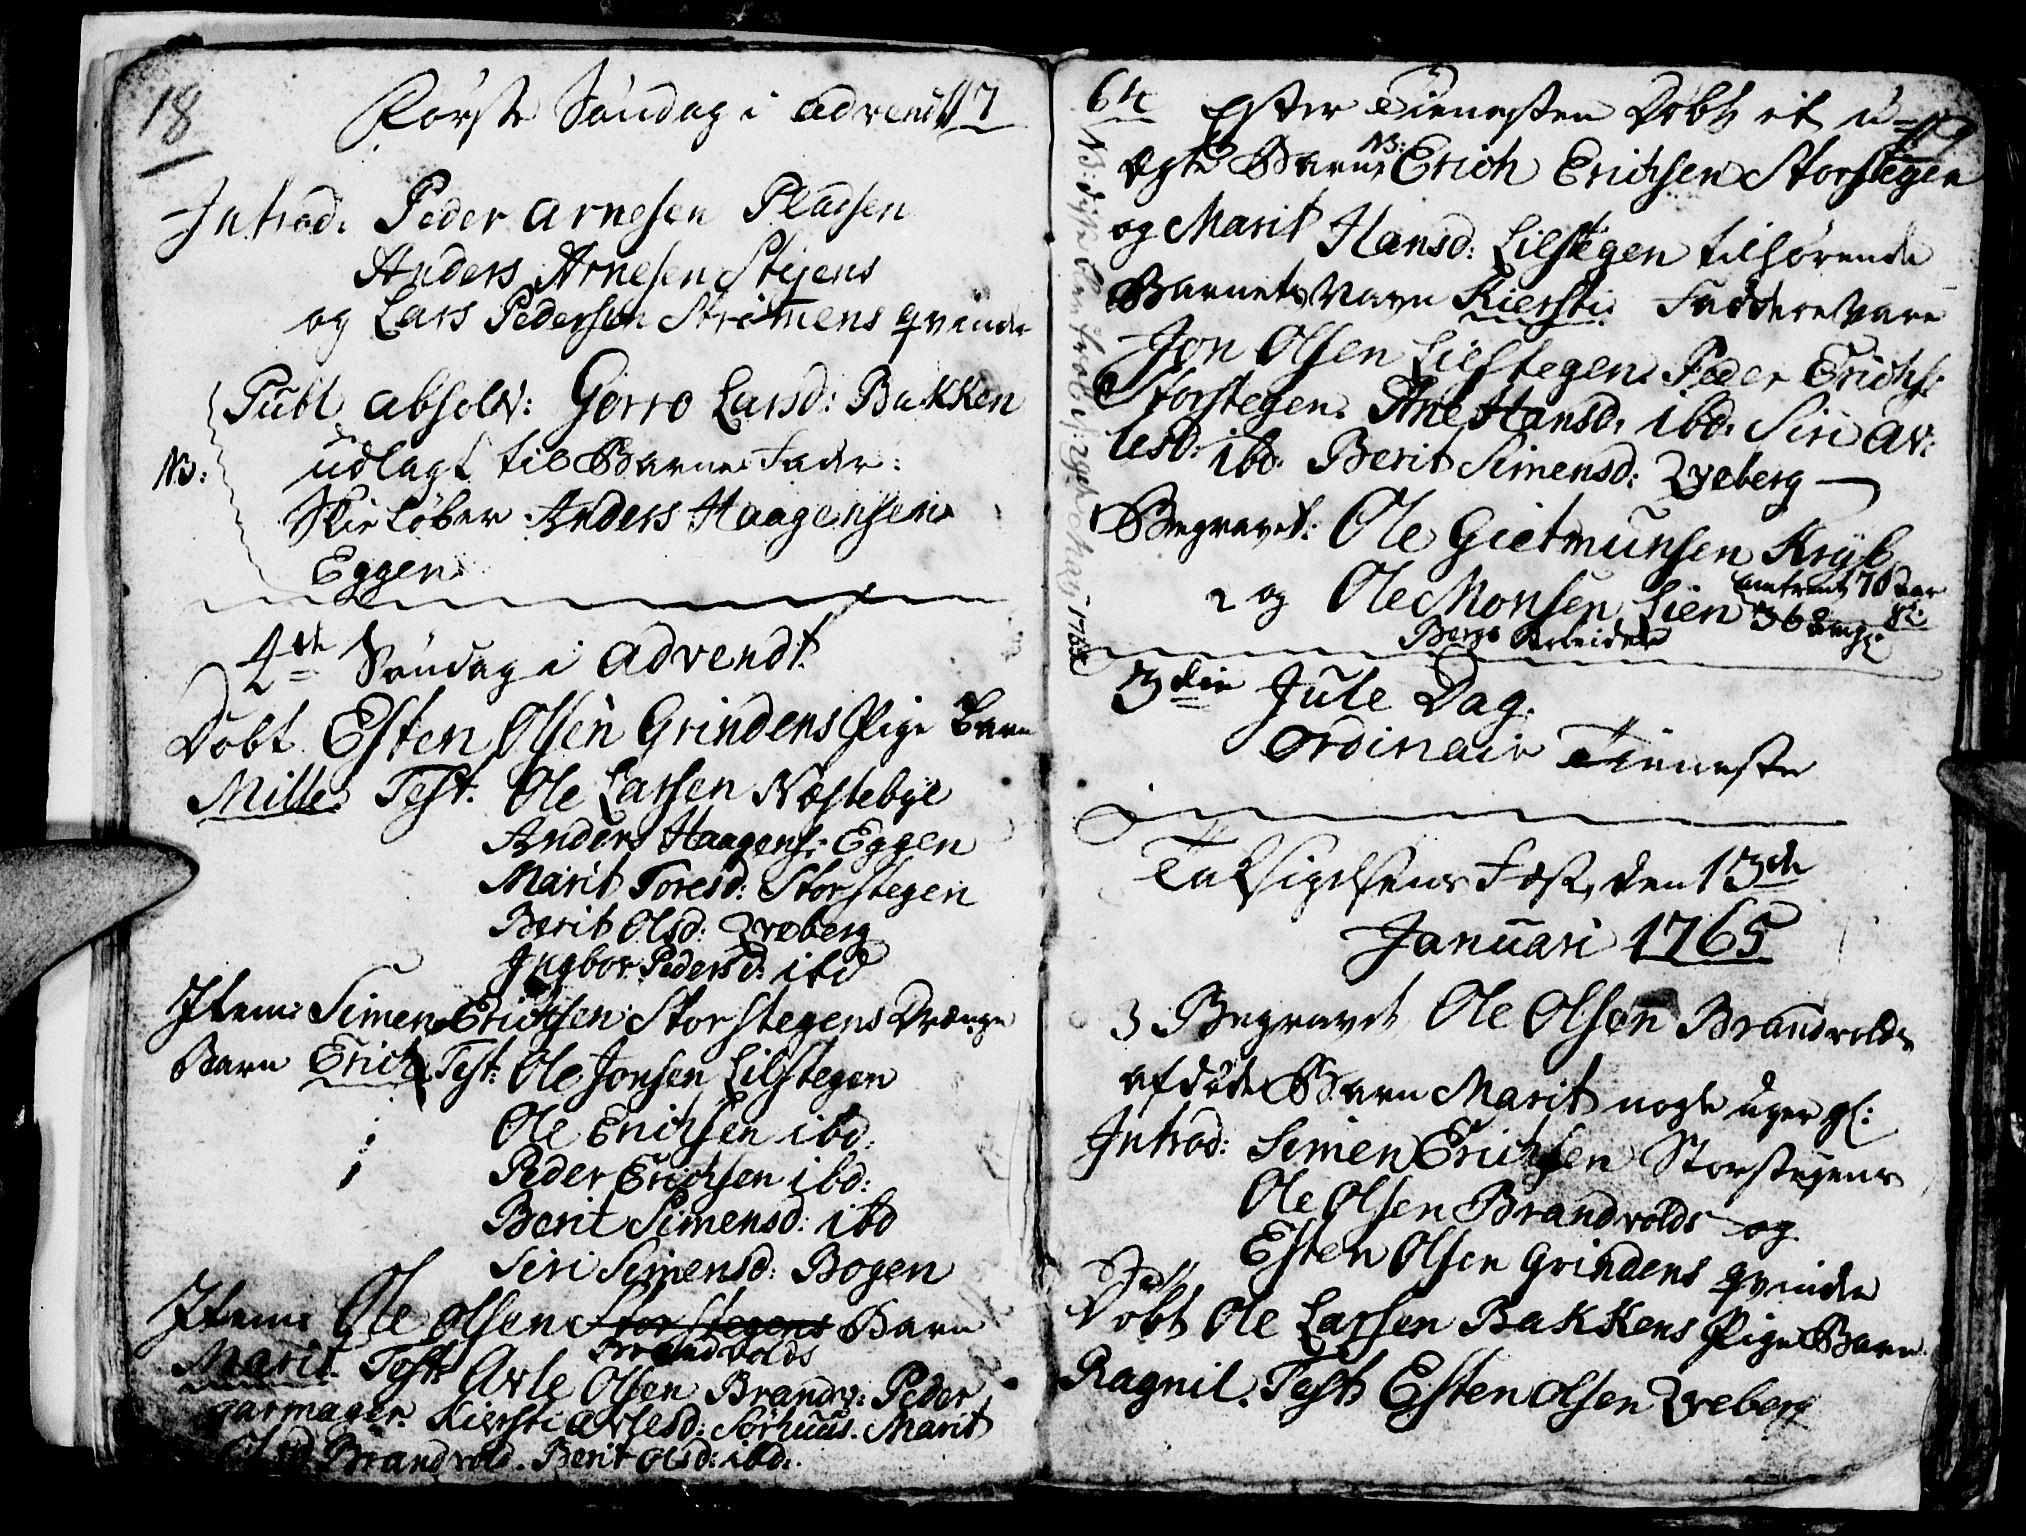 18
Første Søndag i Advendt 17
Introd: Peder Arnesen Plassen
Anders Arnesen Stejens
og Lars Pedersen Strimens qvinde
Publ. absolv: Gorro Larsd: Bakken
NB: udlagt til Barne Fader:
Skie Løber Anders Haagensen
Eggen
4de Søndag i Advendt
Døbt Esten Olsen Grindens Pige Barn
Mille. Test: Ole Larsen Næstebye
Anders Haagens: Eggen
Marit Toresd: Storstegen
Berit Olsd: Qveberg
Ingbor Pedersd: ibd
Item: Simen Erichsen Storstegens Drænge
Barn Erich Test: Ole Jonsen Lilstegen
Ole Erichsen ibd:
Peder Erichsen ibd:
Berit Simensd: ibd
Siri Simensd: Bogen
Item: Ole Olsen Storstegens Barn
Brandvolds
Marit. Test: Arle Olsen Brandv: Peder
garmager. Kiersti Arlesd: Sørhuus. Marit
Olsd Brandvold. Berit Olsd: ibd:
64 Efter Tienesten Døbt et u= 19
ægte Barn NB: Erich Erichsen Storstegen
og Marit Hansd: Lilstegen tilhørende
Barnets Navn Kiersti. Faddere vare
Jon Olsen Lilstegen. Peder Erichs:
Storstegen. Ane Hansd: ibd. Siri Ar:
lesd: ibd. Berit Simensd: Qveberg
Begravet: Ole Gietmunsen Kryl
omtrent 70 Aar
2 og Ole Monsen Lien 36 Aar gl:
Bergs Arbeider
3die Jule Dag.
Ordinair Tieneste
Taksigelsens Fest, den 13de
Januari 1765
3 Begravet Ole Olsen Brandvolds
afdøde Barn Marit nogle uger gl:
Introd: Simen Erichsen Storstegens
Ole Olsen Brandvolds og
Esten Olsen Grindens qvinde
Døbt Ole Larsen Bakkens Pige Barn
Ragnil. Test: Esten Olsen Qveberg